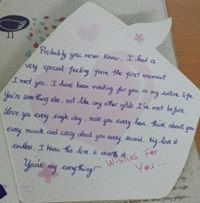 Probably you never know, I had a
very special feeling from the first moment
I met you. I have been waiting for you in my entire life
You're something else, not like any other girls I've met before.
I love you every single day, miss you every hour, think about you
every minute and care about you every second. My love is
endless. I know this love is worth it.
You're my everything!
Wishes for
You...